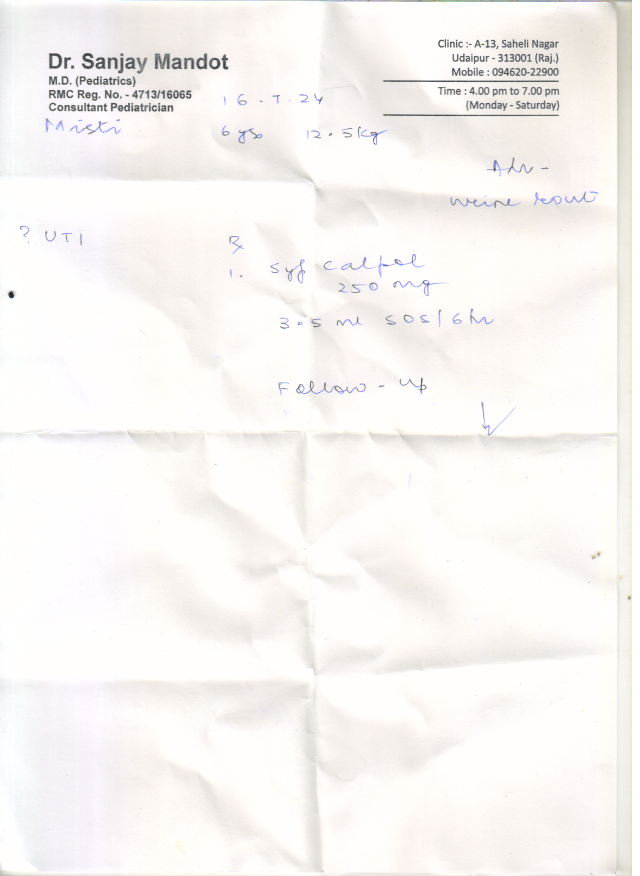 Dr. Sanjay Mandot
M.D. (Pediatrics)
RMC Reg. No. - 4713/16065
Consultant Pediatrician
Clinic :- A-13, Saheli Nagar
Udaipur - 313001 (Raj.)
Mobile : 094620-22900
Time : 4.00 pm to 7.00 pm
(Monday - Saturday)
16.7.24
Misti 6 yrs 12.5kg
Adv -
urine rout
? UTI
Rx
1. Syp Calpol
250 mg
3.5 ml SOS/6hr
Follow-up